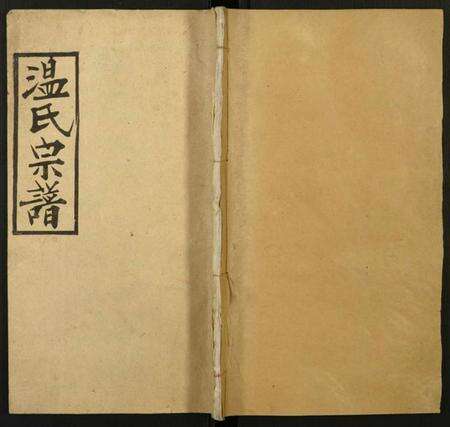 温氏宗譜